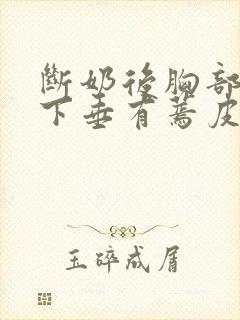 斷奶後胸部
下垂有蔫皮
玉碎成屑